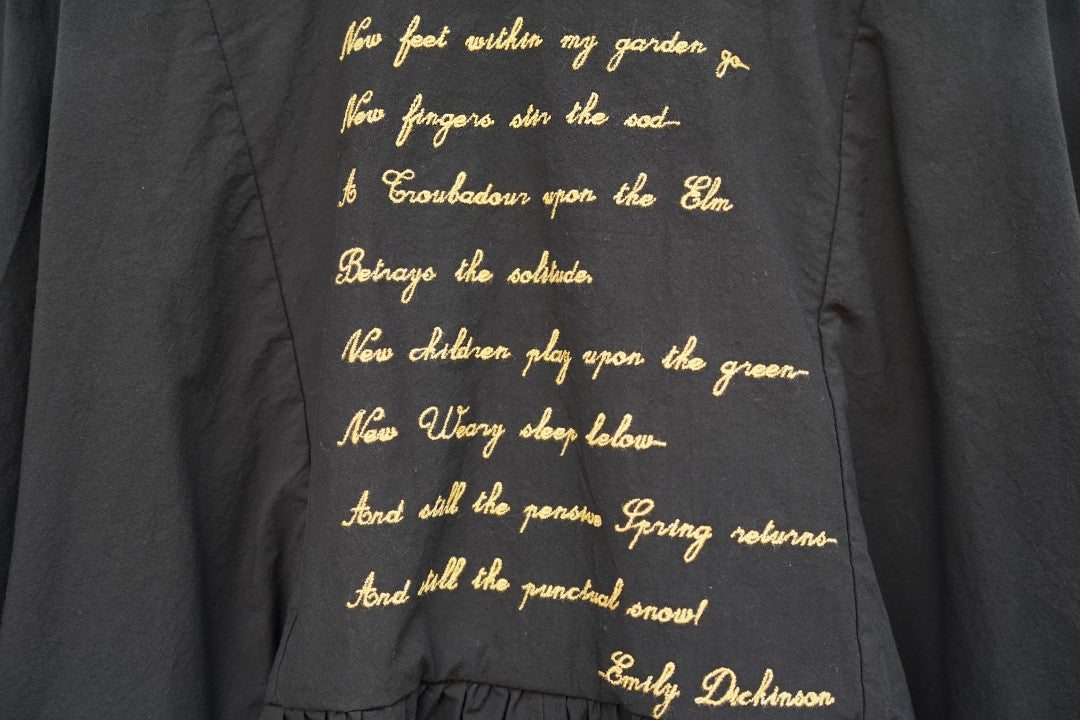 New feet within my garden go
New fingers stir the sod—
A Troubadour upon the Elm
Betrays the solitude.
New children play upon the green—
New Weary sleep below—
And still the pensive Spring returns—
And still the punctual snow!
Emily Dickinson